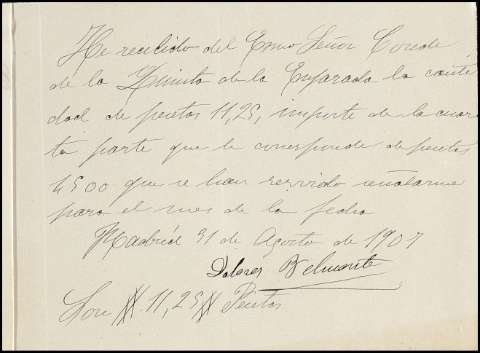 He recibido del Exmo Señor Conde
de la Quinta de la Enjarada la canti
dad de pesetas 11,25, importe de la cuar
ta parte que le corresponde de pesetas
45'00 que se han servido señalarme
para el mes de la fecha
Madrid 31 de Agosto de 1907
Dolores Belmonte
Son 11,25 Pesetas